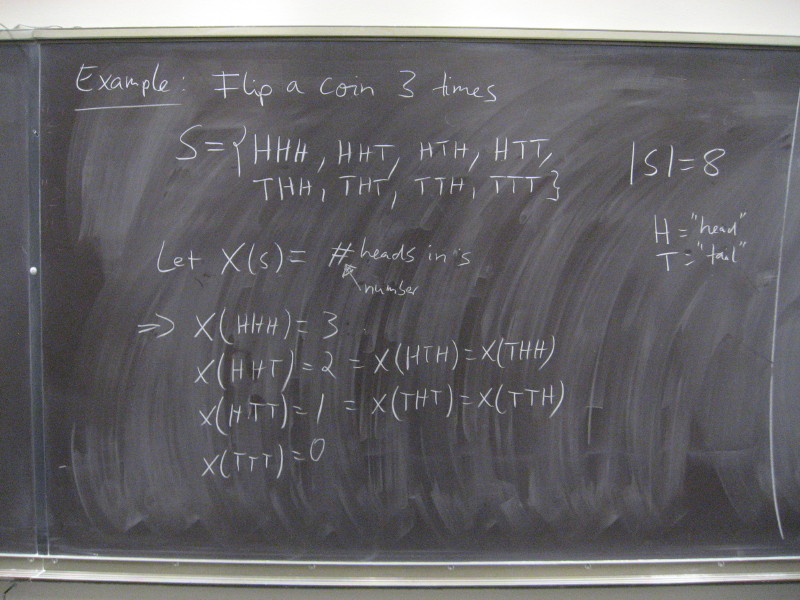 Example: Flip a coin 3 times
S={HHH, HHT, HTH, HTT,
THH, THT, TTH, TTT}
|S|=8
H="head"
T="tail"
Let X(s)= # heads in s
number
=> X(HHH)=3
X(HHT)=2 = X(HTH)=X(THH)
X(HTT)=1 = X(THT)=X(TTH)
X(TTT)=0